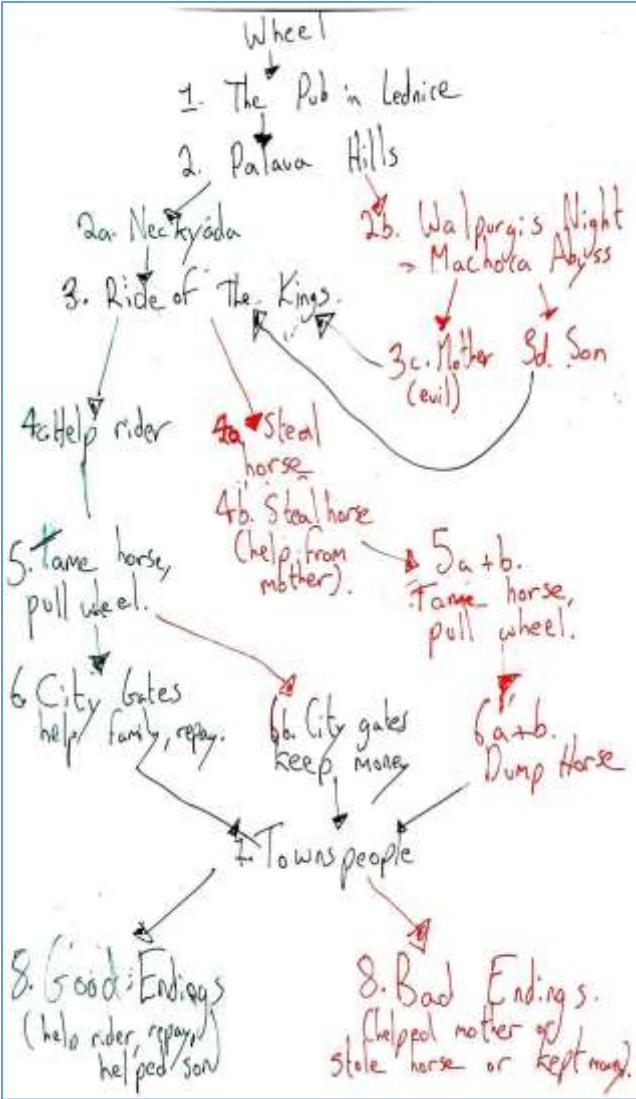 Wheel
1. The Pub in Lednice
2. Palava Hills
2a. Neckyáda
2b. Walpurgis Night
→ Machoca Abyss
3. Ride of The Kings.
3c. Mother
(evil)
3d. Son
4c Help rider
4a Steal
horse
4b. Steal horse
(help from
mother).
5. Tame horse,
pull wheel.
5a+b.
Tame horse,
pull wheel.
6. City Gates
help family, repay.
6b. City gates
keep money
6a+b.
Dump Horse
7. Townspeople
8. Good Endings
(help rider, repay,
helped son)
8. Bad Endings.
(helped mother or
stole horse or kept money).